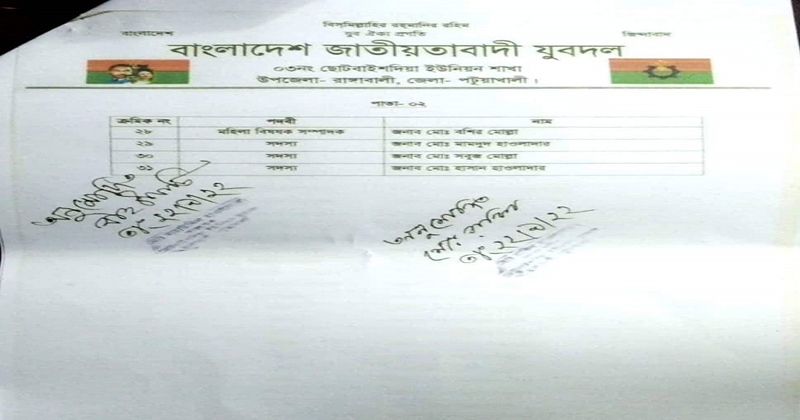 বিসমিল্লাহির রহমানির রহিম
বাংলাদেশ যুব ঐক্য প্রগতি জিন্দাবাদ
বাংলাদেশ জাতীয়তাবাদী যুবদল
০৩নং ছোটবাইশদিয়া ইউনিয়ন শাখা
উপজেলা- রাঙ্গাবালী, জেলা- পটুয়াখালী।
পাতা- ০২
ক্রমিক নং পদবী নাম
২৮ মহিলা বিষয়ক সম্পাদক জনাব মোঃ বশির মোল্লা
২৯ সদস্য জনাব মোঃ মামলুদ হাওলাদার
৩০ সদস্য জনাব মোঃ সবুজ মোল্লা
৩১ সদস্য জনাব মোঃ হাসান হাওলাদার
অনুমোদিত
তাং ২২/৩/২২
অনুমোদিত
তাং ২২/৩/২২